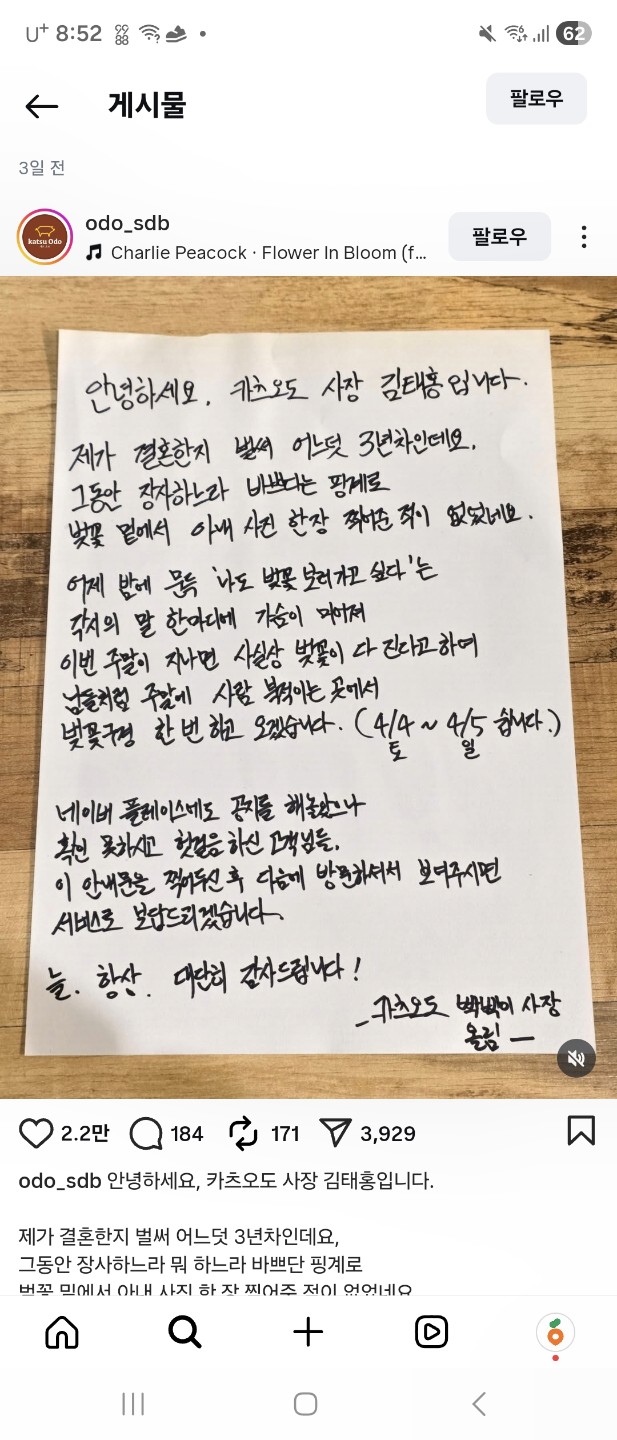 U+ 8:52 62
게시물 팔로우
3일 전
katsu Odo
odo_sdb
Charlie Peacock · Flower In Bloom (f...
팔로우
안녕하세요, 카츠오도 사장 김태홍입니다.
제가 결혼한지 벌써 어느덧 3년차인데요,
그동안 장사하느라 바쁘다는 핑계로
벚꽃 밑에서 아내 사진 한장 찍어준 적이 없었네요.
어제 밤에 문득 '나도 벚꽃 보러가고 싶다'는
각시의 말 한마디에 가슴이 미어져
이번 주말이 지나면 사실상 벚꽃이 다 진다고하여
남들처럼 주말에 사람 북적이는 곳에서
벚꽃구경 한 번 하고 오겠습니다. (4/4 ~ 4/5 쉽니다.)
토 일
네이버 플레이스에도 공지를 해놓았으나
확인 못하시고 헛걸음하신 고객님들,
이 안내문을 찍어두신 후 다음에 방문하셔서 보여주시면
서비스로 보답드리겠습니다.
늘, 항상, 대단히 감사드립니다!
- 카츠오도 빡빡이 사장
올림 -
2.2만 184 171 3,929
odo_sdb 안녕하세요, 카츠오도 사장 김태홍입니다.
제가 결혼한지 벌써 어느덧 3년차인데요,
그동안 장사하느라 뭐 하느라 바쁘단 핑계로
벚꽃 밑에서 아내 사진 한 장 찍어준 적이 없었네요